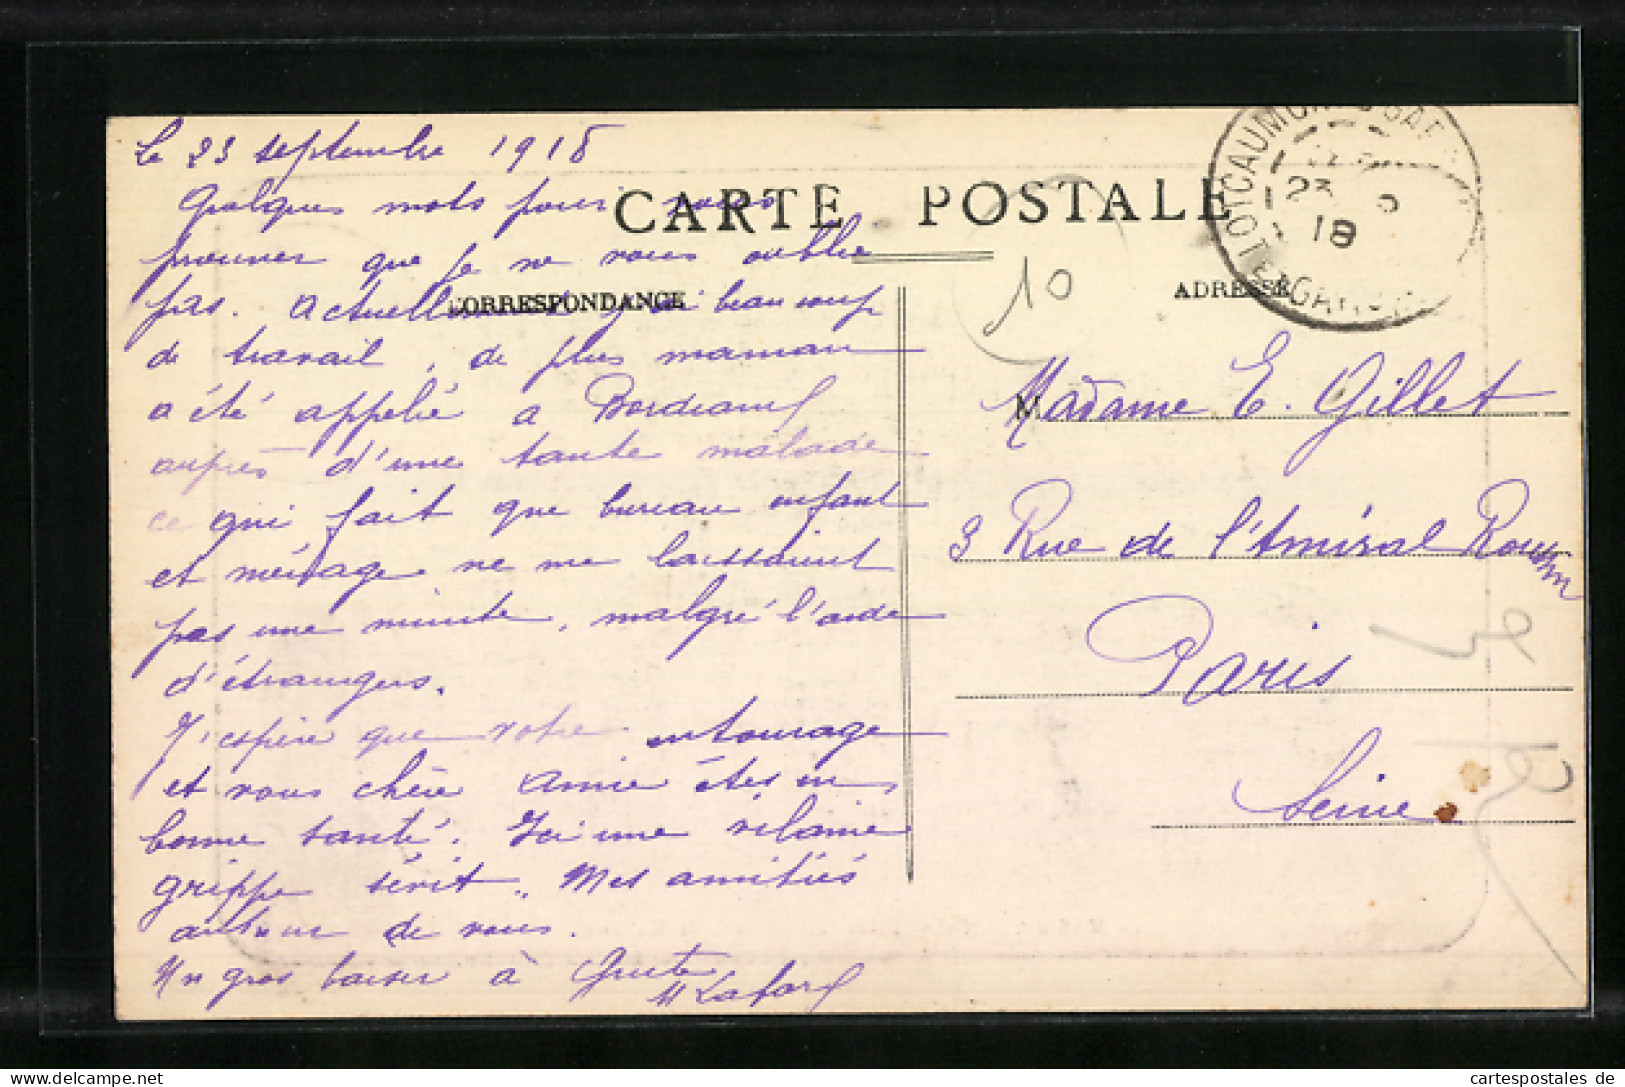 Le 23 septembre 1918
Quelques mots pour vous
prouver que je ne vous oublie
pas. Actuellement j'ai beaucoup
de travail, de plus maman
a été appelée a Bordeaux
auprès d'une tante malade
ce qui fait que bureau enfant
et ménage ne me laissaient
pas une minute, malgré l'aide
d'étrangers.
J'espère que votre entourage
et vous chère amie êtes en
bonne santé. Ici une vilaine
grippe sévit. Mes amitiés
autour de vous.
Un gros baiser à
CARTE POSTALE
CORRESPONDANCE
ADRESSE
10
23
18
LOT ET GARONNE
M
Madame E. Gillet
3 Rue de l'Amiral Roussin
Paris
Seine.
cartespostales de